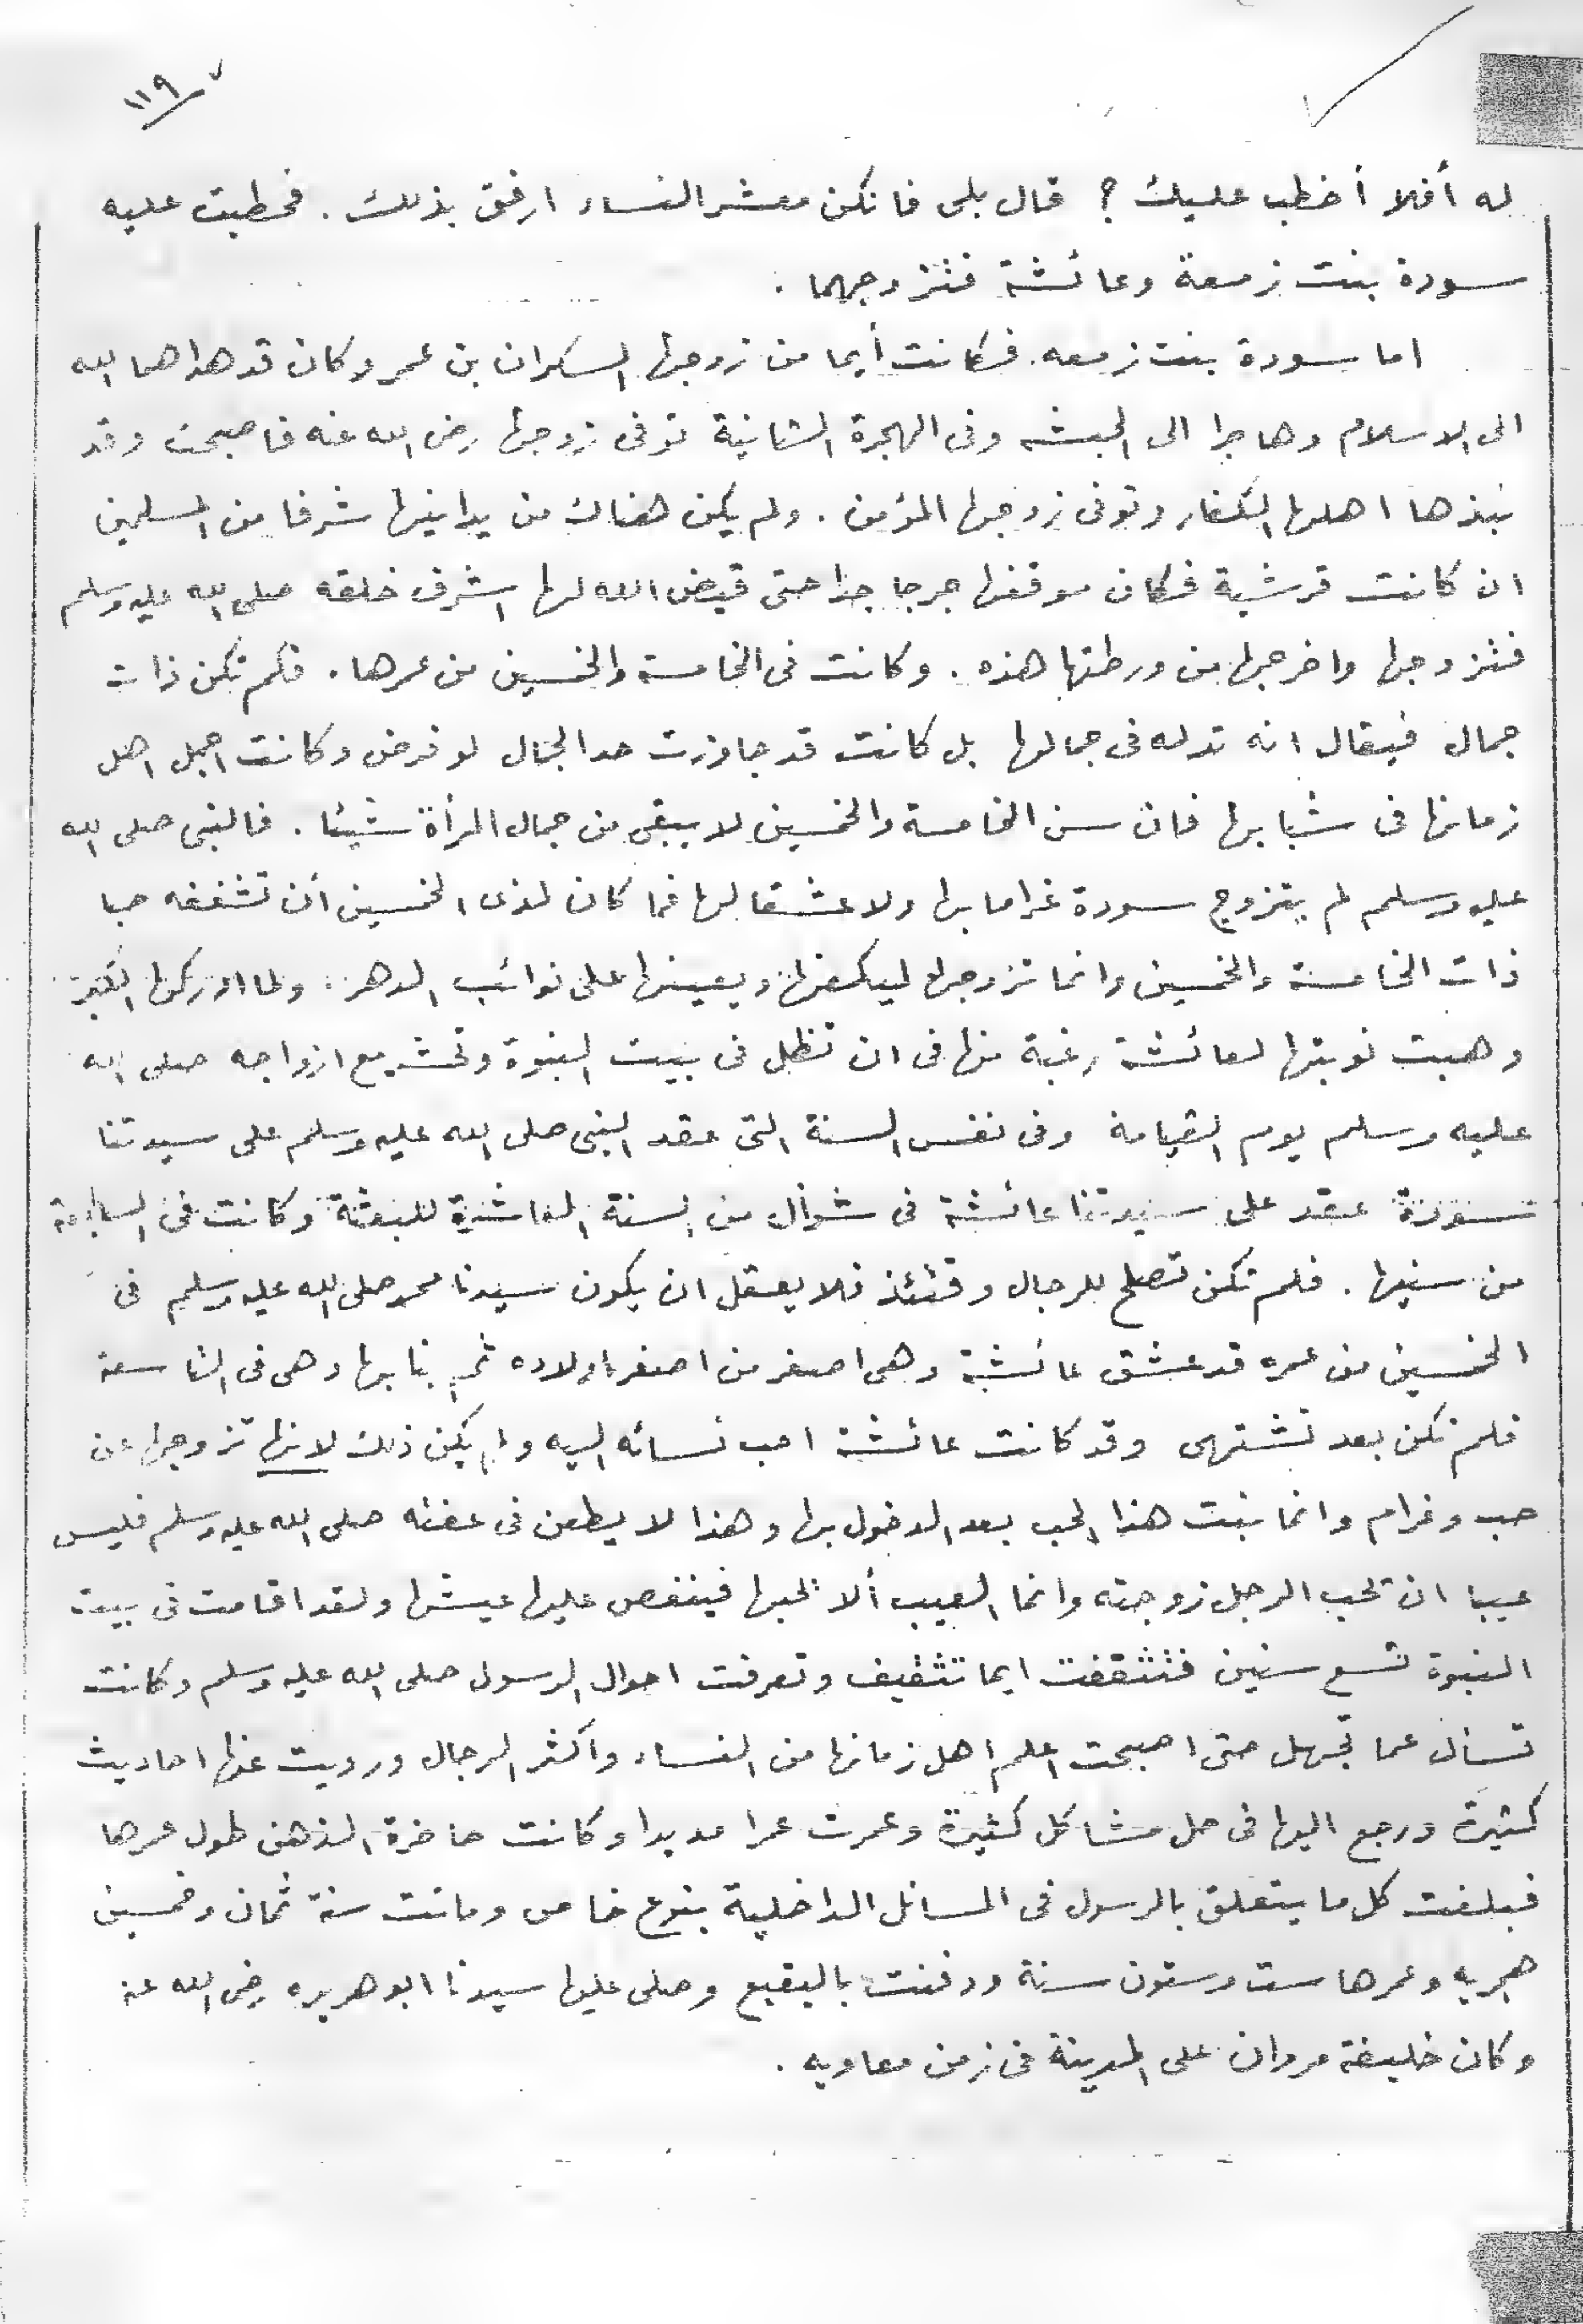 ١١٩
له أفلا أخطب عليك ؟ قال بلى فانكن معشر النساء ارفق بذلك . فخطبت عليه
سودة بنت زمعة وعائشة فتزوجهما .
اما سودة بنت زمعه فكانت أيما من زوجها السكران بن عمرو كان قد هداهما الله
الى الاسلام وهاجرا الى الحبشه وفى الهجرة الثانية توفى زوجها رضى الله عنه فاصبحت وقد
نبذها اهلها الكفار وتوفى زوجها المؤمن . ولم يكن هناك من يدانيها شرفا من المسلمين
ان كانت قرشية فكان موقفها حرجا جدا حتى قيض الله لها اشرف خلقه صلى الله عليه وسلم
فتزوجها واخرجها من ورطتها هذه . وكانت فى الخامسة والخمسين من عمرها . فلم تكن ذات
جمال فيقال انه تدله فى جمالها بل كانت قد جاوزت حد الجمال لو فرض وكانت اجمل اهل
زمانها فى شبابها فان سن الخامسة والخمسين لا يبقى من جمال المرأة شيئا . فالنبى صلى الله
عليه وسلم لم يتزوج سودة غراما بها ولا عشقا لها فما كان لذى الخمسين أن تشغفه حبا
ذات الخامسة والخمسين وانما تزوجها ليكفلها ويعينها على نوائب الدهر . ولما ادركها الكبر
وهبت نوبتها لعائشة رغبة منها فى ان تظل فى بيت النبوة وتحشر مع ازواجه صلى الله
عليه وسلم يوم القيامة وفى نفس السنة التى عقد النبى صلى الله عليه وسلم على سيدتنا
سودة عقد على سيدتنا عائشة فى شوال من السنة العاشرة للبعثة وكانت فى السابعة
من سنيها . فلم تكن تصلح للرجال وقتئذ فلا يعقل ان يكون سيدنا محمد صلى الله عليه وسلم فى
الخمسين من عمره قد عشق عائشة وهى اصغر من اصغر اولاده ثم بنا بها وهى فى التاسعة
فلم تكن بعد تشتهى وقد كانت عائشة احب نسائه اليه ولم يكن ذلك لانها تزوجها عن
حب وغرام وانما نبت هذا الحب بعد الدخول بها وهذا لا يطعن فى عفته صلى الله عليه وسلم فليس
عيبا ان يحب الرجل زوجته وانما العيب ألا يحبها فينغص عليها عيشها ولقد اقامت فى بيت
النبوة تسع سنين فتثقفت ايما تثقيف وتعرفت احوال الرسول صلى الله عليه وسلم وكانت
تسأل عما تجهل حتى اصبحت اعلم اهل زمانها من النساء واكثر الرجال ورويت عنها احاديث
كثيرة ورجع اليها فى حل مشاكل كثيرة وعمرت عمرا مديدا وكانت حاضرة الذهن طول عمرها
فبلغت كل ما يتعلق بالرسول فى المسائل الداخلية بنوع خاص وماتت سنة ثمان وخمسين
هجريه وعمرها ست وستون سنة ودفنت بالبقيع وصلى عليها سيدنا ابو هريره رضى الله عنه
وكان خليفة مروان على المدينة فى زمن معاويه .